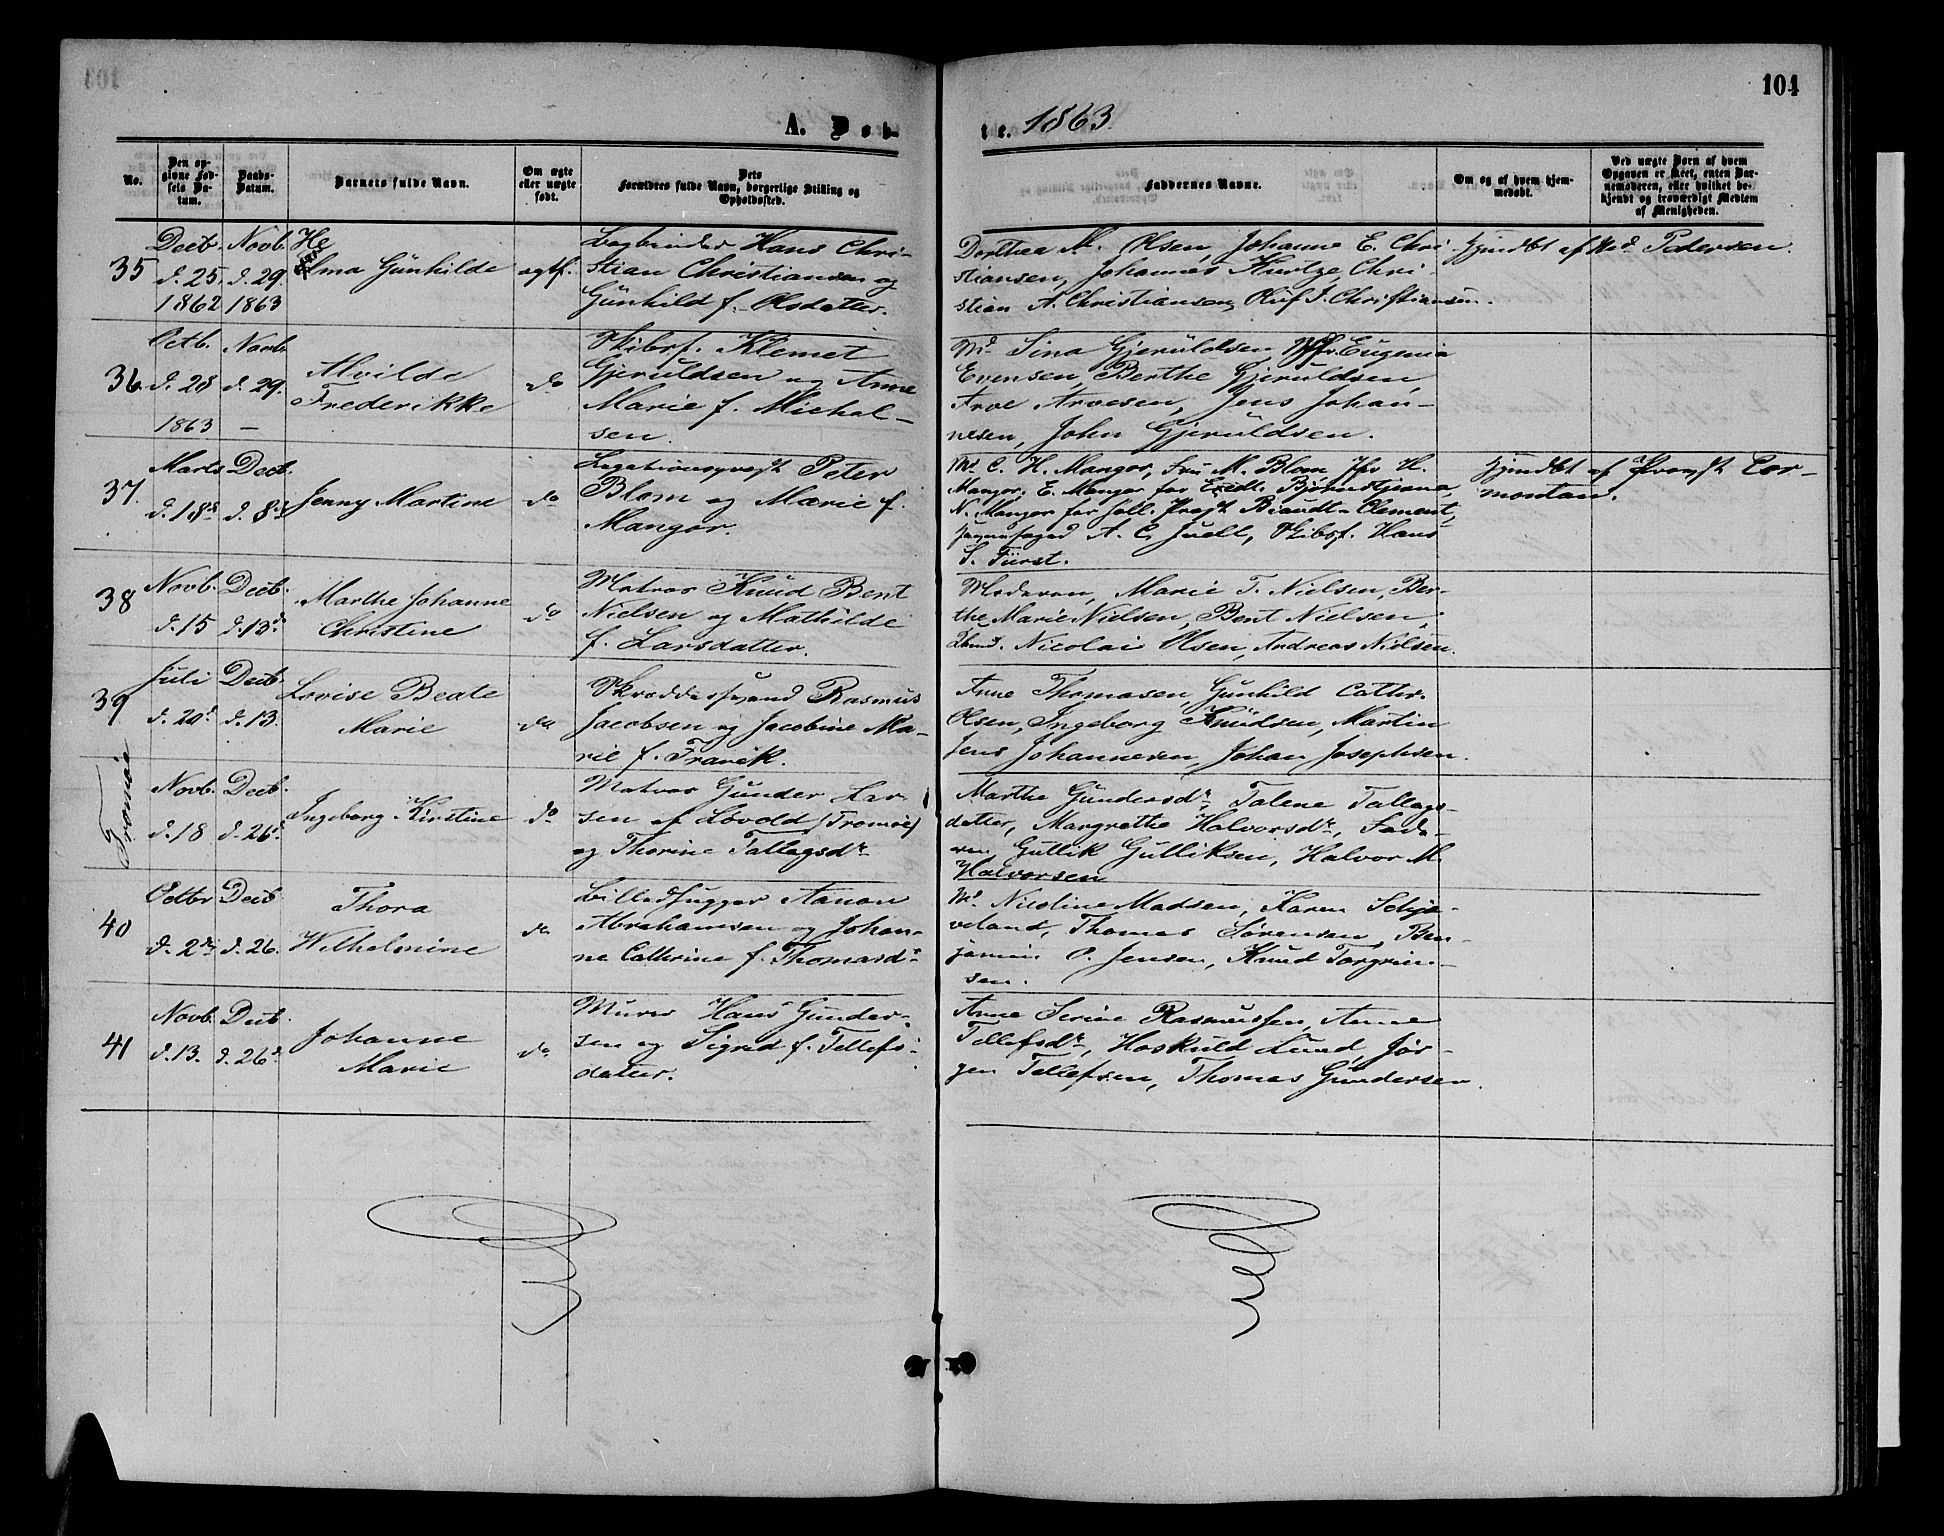 104
A. Døb-
te. 1863.
No.
Den op-
givne Fød-
sels Da-
tum.
Daabs-
Datum.
Barnets fulde Navn.
Om ægte
eller uægte
født.
Dets
Forældres fulde Navn, borgerlige Stilling og
Opholdssted.
Faddernes Navne.
Om og af hvem hjem-
medøbt.
Ved uægte Børn af hvem
Opgaven er skeet, enten Bar-
nemoderen, eller hvilket be-
kjendt og troværdigt Medlem
af Menigheden.
35
Decb.
d. 25.
1862
Novb.
d. 29.
1863
He
lma Günhilde
ægtf.
Bogbinder Hans Chri-
stian Christiansen og
Günhild f. Olsdatter.
Dorthea M. Olsen, Johanne E. Chri-
stiansen, Johannes Kurtze, Chri-
stian A. Christiansen, Oluf J. Christiansen.
Hjmdbt af Md. Pedersen.
36
Octb.
d. 28
1863
Novb
d. 29.
—
Alvilde
Frederikke
do
Skibsf. Klemet
Gjerüldsen og Anne
Marie f. Michal-
sen.
Md. Sina Gjerüldsen, Jfr. Eugenia
Evensen, Berthe Gjerüldsen,
Arve Arvesen, Jens Johan-
nesen, John Gjerüldsen.
37.
Marts
d. 18de
Decb.
d. 8de
Jenny Martine
do
Legationspræst Peter
Blom og Marie f.
Mangor.
Md. C. H. Mangor, Frü M. Blom, Jfr H.
Mangor, E. Mangor for Bjørnstjerna,
N. Mangor for Biaudt-Clement,
A. C. Juell, Skibsf. Hans
S. Fürst.
Hjmdbt af Cor-
montan.
38
Novb.
d. 15
Decb.
d. 13de
Marthe Johanne
Christine
do
Matros Knüd Bent
Nielsen og Mathilde
f. Larsdatter.
Moderen, Marie T. Nielsen, Ber-
the Marie Nielsen, Bent Nielsen,
Nicolai Olsen, Andreas Nielsen.
39
Juli
d. 20d
Decb.
d. 13.
Lovise Beate
Marie
do
Skræddersvend Rasmus
Jacobsen og Jacobine Ma-
rie f. Fravik.
Anne Thomasen, Günhild Cathr.
Olsen, Ingeborg Knüdsen, Martin
Jens Johannesen, Johan Josephsen.
Tromøe
Novb.
d. 18
Decb.
d. 26d
Ingeborg Kirstine
do
Matros Günder Lar-
sen af Løvold (Tromøe)
og Thorine Tallagsdr
Marthe Gündersdr, Talene Tallags-
datter, Margrethe Halvorsdr, Fade-
ren, Güllik Gülliksen, Halvor M.
Halvorsen
40
Octbr
d. 2den
Decb
d. 26.
Thora
Wilhelmine
do
Billedhugger Aanon
Abrahamsen og Johan-
ne Cathrine f. Thomasdr
Md. Nicoline Madsen, Karen Schja-
veland, Thomas Sørensen, Ben-
jamin O. Jensen, Knüd Torgrim-
sen.
41
Novb.
d. 13.
Decb.
d. 26d
Johanne
Marie
do
Murer Hans Günder-
sen og Sigrid f. Tellefs-
datter.
Anne Serine Rasmussen, Anne
Tellefsdr, Haskuld Lund, Jør-
gen Tellefsen, Thomas Gündersen.